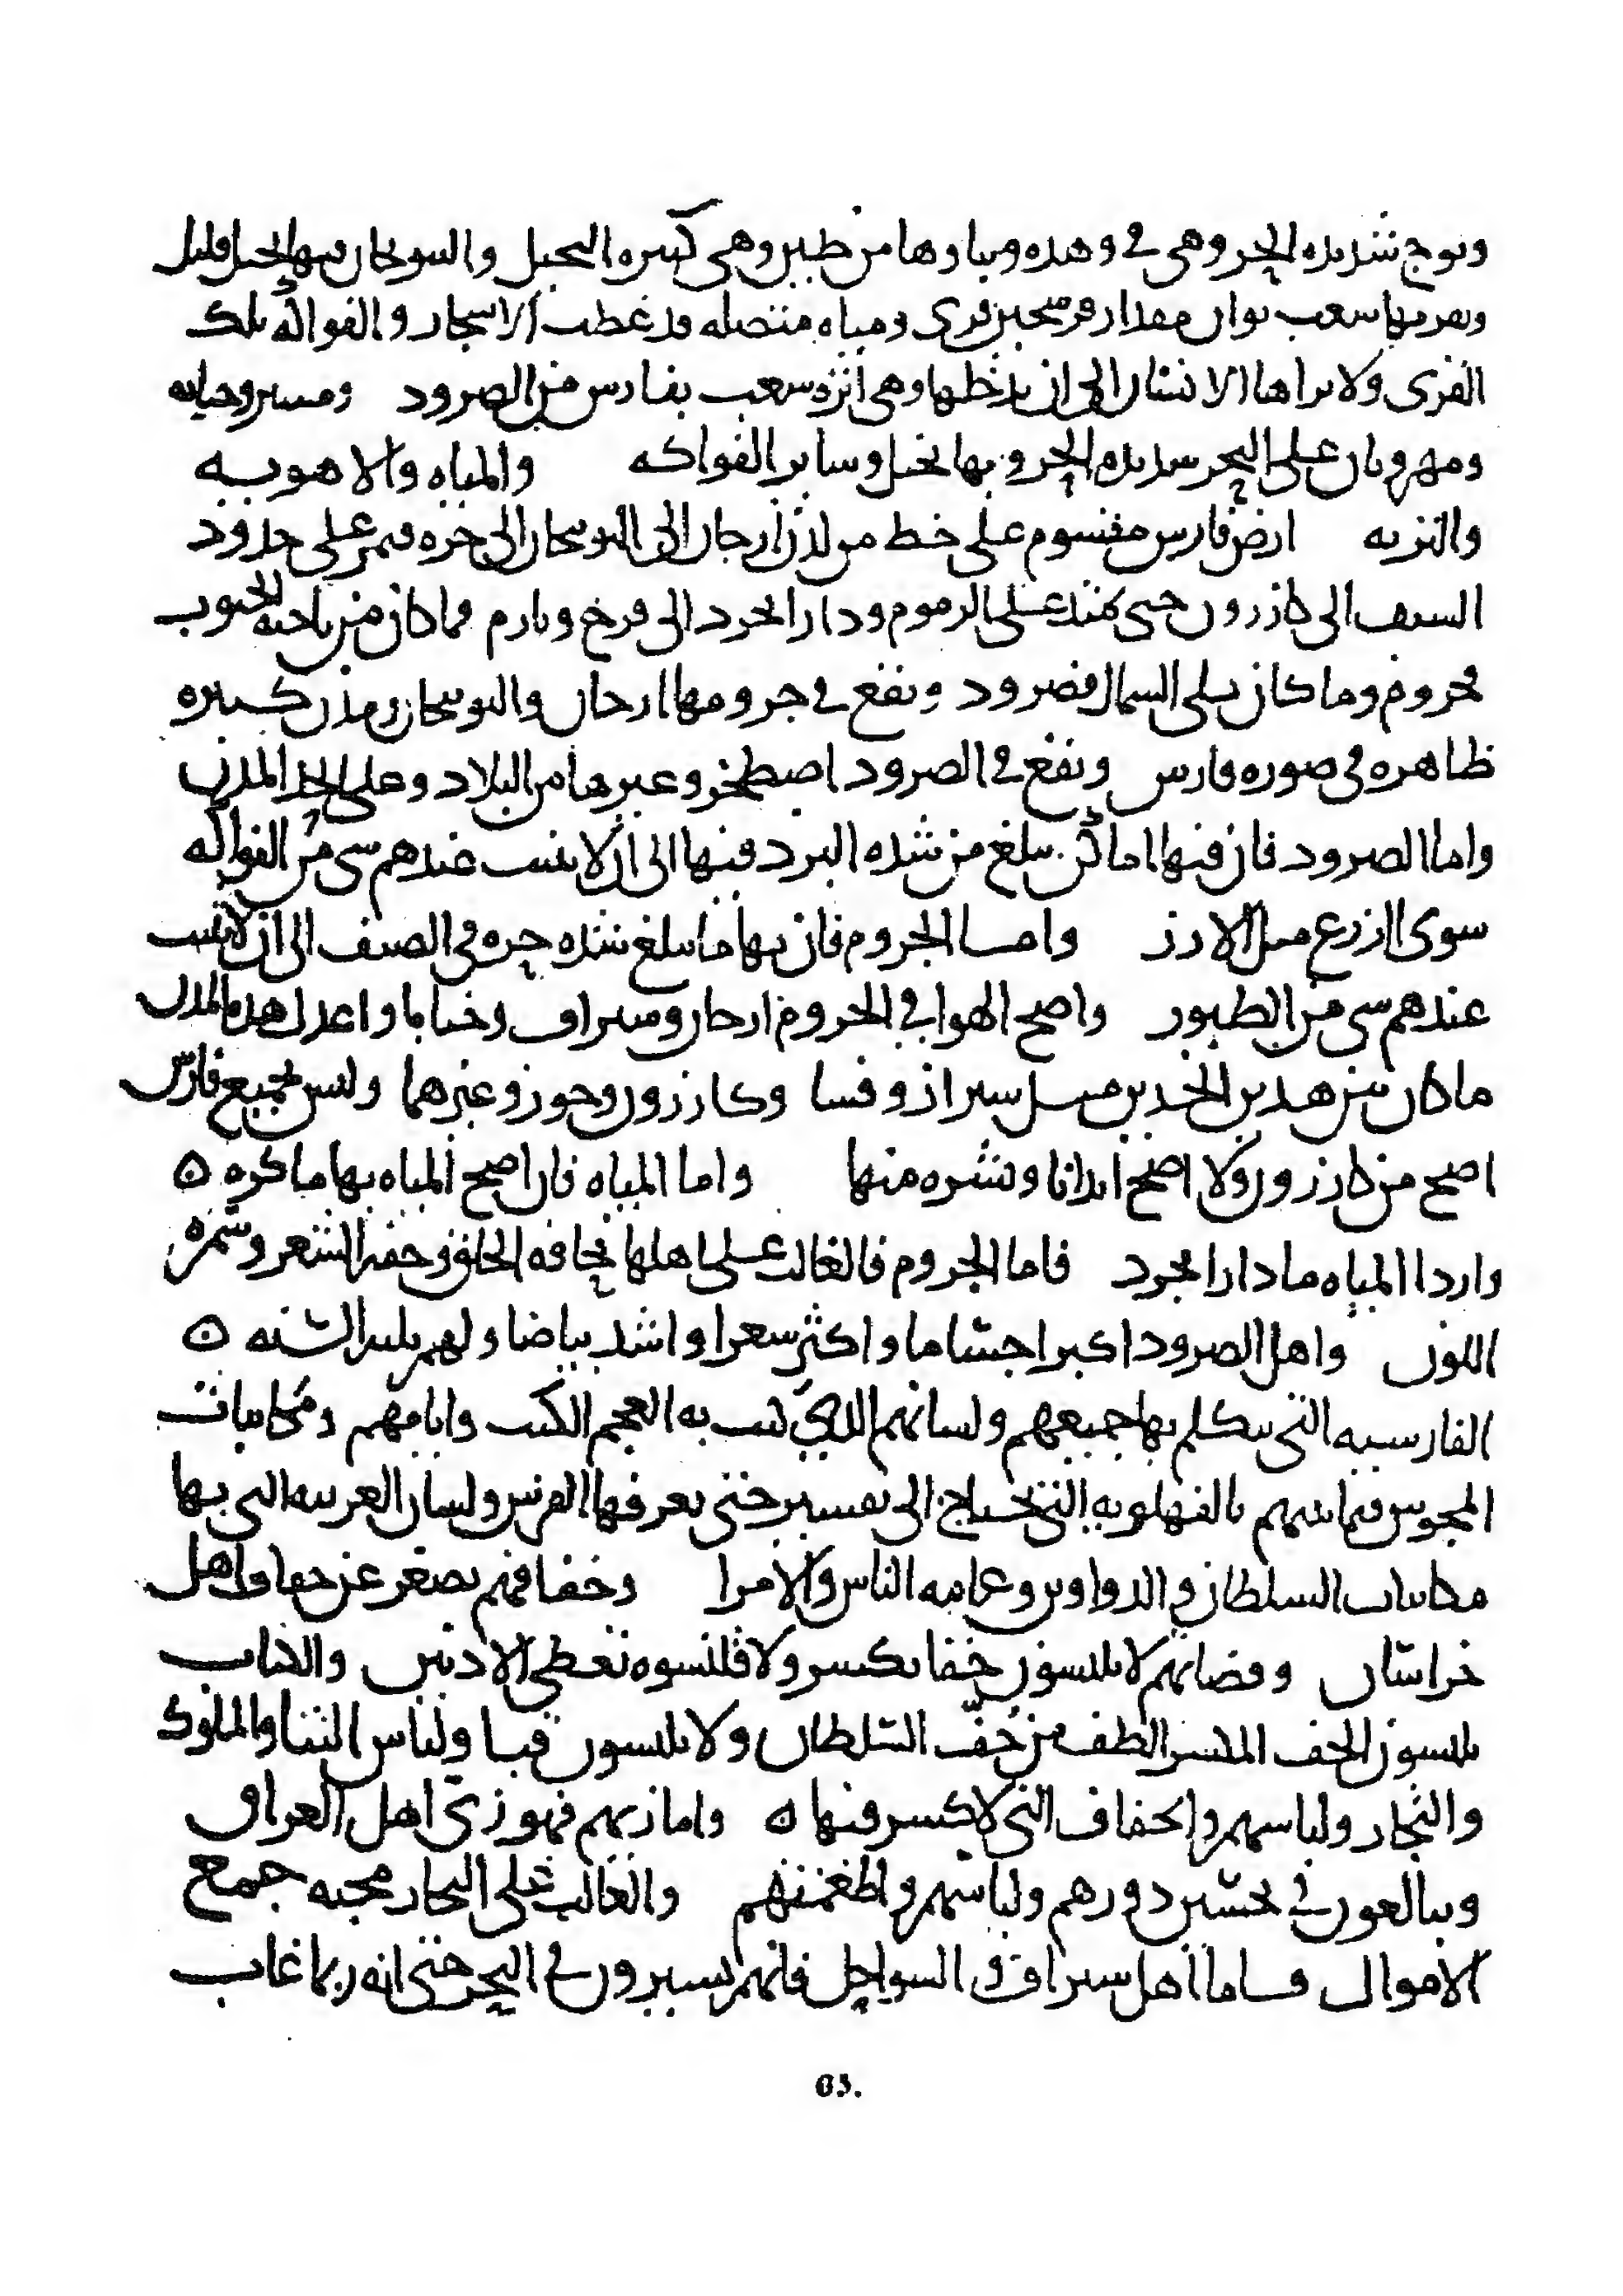 وتوج شديده الحر وهي في وهده وبناوها من طين وهي كثيره النخيل والنوبنجان فيها نخيل قليل
وبقربها شعب بوان مقدار فرسخين قرى ومياه متصله قد غطت الاشجار والفواكه تلك
القرى ولا يراها الانسان الى ان يدخلها وهي انزه شعب بفارس من الصرود وسينيز وجنابه
ومهروبان على البحر شديده الحر وبها نخيل وساير الفواكه والمياه والاهويه
والتربه ارض فارس مقسوم على خط من لدن ارجان الى النوبنجان الى خره فيمر على حدود
السيف الى كازرون حتى يمتد على الرموم ودارابجرد الى فرج وتارم فما كان من ناحيه الجنوب
فجروم وما كان يلي الشمال فصرود ويقع في جرومها ارجان والنوبنجان ومدن كبيره
ظاهره في صوره فارس ويقع في الصرود اصطخر وغيرها من البلاد وعلى الحد المدن
واما الصرود فان فيها اماكن يبلغ من شده البرد فيها الى ان لا ينبت عندهم شي من الفواكه
سوى الزرع مثل الارز واما الجروم فان بها ما يبلغ شده حره في الصيف الى ان لا يثبت
عندهم شي من الطيور واصح الهوا في الجروم ارجان وسيراف وجنابا واعدل هذه المدن
ما كان بين هذين الحدين مثل شيراز وفسا وكازرون وجور وغيرهما وليس بجميع فارس
اصح من كازرون ولا اصح ابدانا وبشره منها واما المياه فان اصح المياه بها ما كره ه
واردا المياه ما دارابجرد فاما الجروم فالغالب على اهلها نحافه الخلق وخفه الشعر وسمره
اللون واهل الصرود اكبر اجساما واكثر شعرا واشد بياضا ولهم ثلث السنه ه
الفارسيه التي يتكلم بها جميعهم ولسانهم الذي كتب به العجم الكتب وايامهم ومكاتبات
المجوس فيما بينهم بالفهلويه التي تحتاج الى تفسير حتى يعرفها الفرس ولسان العربيه التي بها
مكاتبات السلطان والدواوين وعامه الناس والامرا وخفافهم تصغر عن خفاف اهل
خراسان وقضاتهم لا يلبسون خفا بكسر ولا قلنسوه تغطي الاذنين والكتاب
يلبسون الخف المكسر الطف من خف السلطان ولا يلبسون قبا ولباس التناء والملوك
والتجار ولباسهم والخفاف التي لا كسر فيها ه واما زيهم فهو زي اهل العراق
ويبالغون في تحسين دورهم ولباسهم واطعمتهم والغالب على التجار محبه جمع
الاموال فاما اهل سيراف والسواحل فانهم يسيرون في البحر حتى انه ربما غاب
65.